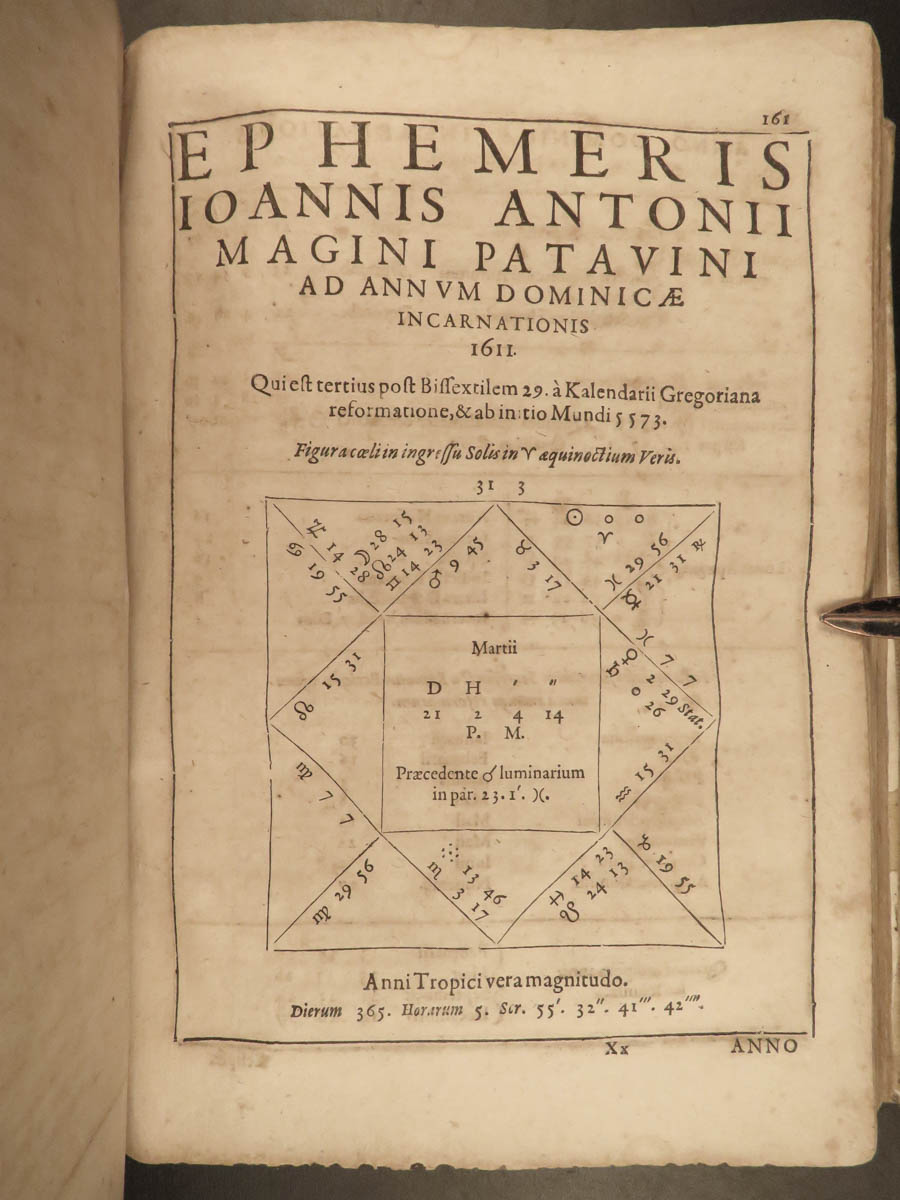 161
EPHEMERIS
IOANNIS ANTONII
MAGINI PATAVINI
AD ANNVM DOMINICÆ
INCARNATIONIS
1611.
Qui est tertius post Bissextilem 29. à Kalendarii Gregoriana
reformatione, & ab initio Mundi 5573.
Figura cœli in ingressu Solis in ♈ æquinoctium Veris.
31 3
☉ 0 0
♈
♃ 14 28
♋ 19 55
☽ 28 15
☊ 24 13
♊ 14 23
♂ 9 45
♉ 3 17
♓ 29 56
☿ 21 31 ℞
♓ 7 7
♀ 2 29 Stat.
♄ 0 26
♌ 15 31
♒ 15 31
Martii
D H ′ ″
21 2 4 14
P. M.
Præcedente ☌ luminarium
in par. 23. 1′. ♓.
♍ 7 7
♍ 29 56
13 46
♏ 3 17
♐ 14 23
☋ 24 13
♑ 19 55
Anni Tropici vera magnitudo.
Dierum 365. Horarum 5. Scr. 55′. 32″. 41‴. 42⁗.
Xx
ANNO